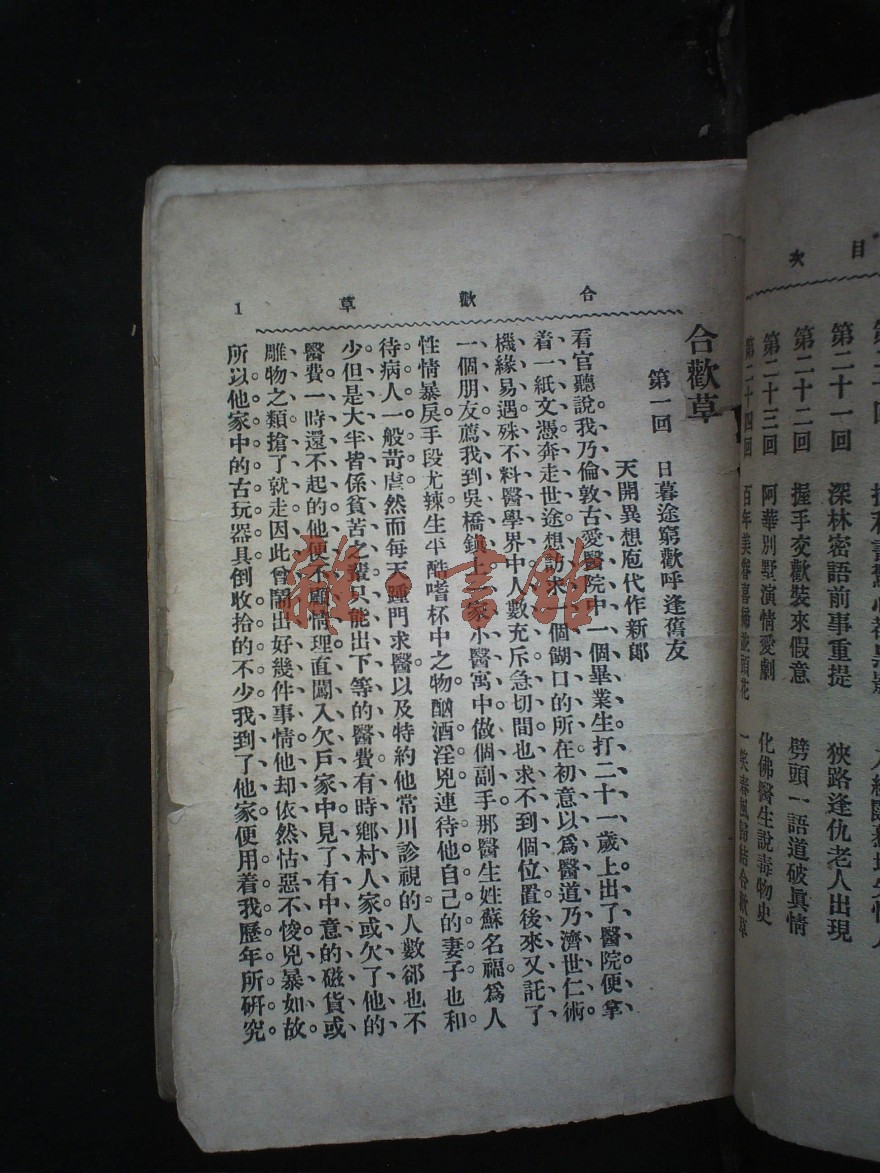 目次
第二十一回 深林密語前事重提 狹路逢仇老人出現
第二十二回 握手交歡裝來假意 劈頭一語道破眞情
第二十三回 阿華別墅演情愛劇 化佛醫生說毒物史
第二十四回 百年美眷喜 並頭花 一笑春風歸結合歡草
合歡草 1
合歡草
第一回 日暮途窮歡呼逢舊友
天開異想庖代作新郎
看官聽說我乃倫敦古愛醫院中一個畢業生打二十一歲上出了醫院便拿
着一紙文憑奔走世途想訪求一個餬口的所在初意以爲醫道乃濟世仁術
機緣易遇殊不料醫學界中人數充斥急切間也求不到個位置後來又託了
一個朋友薦我到吳橋鎮上一家小醫寓中做個副手那醫生姓蘇名福爲人
性情暴戾手段尤辣生平酷嗜杯中之物酗酒淫兇連待他自己的妻子也和
待病人一般苛虐然而每天踵門求醫以及特約他常川診視的人數卻也不
少但是大半皆係貧苦之輩只能出下等的醫費有時鄉村人家或欠了他的
醫費一時還不起的他便不顧情理直闖入欠戶家中見了有中意的磁貨或
雕物之類搶了就走因此曾鬧出好幾件事情他却依然怙惡不悛兇暴如故
所以他家中的古玩器具倒收拾的不少我到了他家便用着我歷年所硏究
雜書館